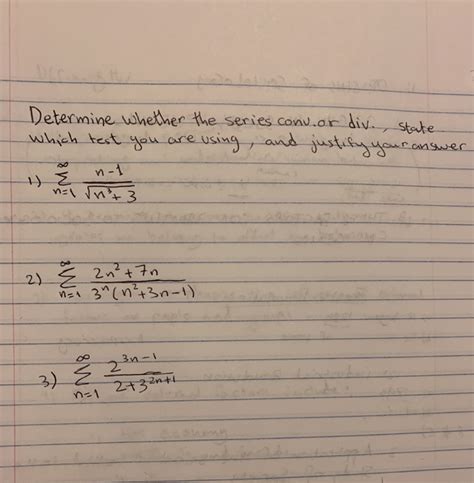 Determine whether the series conv. or div., state
which test you are using, and justify your answer
1) ∞∑n=1 (n-1)/√(n³+3)
2) ∞∑n=1 (2n²+7n)/(3ⁿ(n²+3n-1))
3) ∞∑n=1 2³ⁿ⁻¹/(2+3²ⁿ⁺¹)